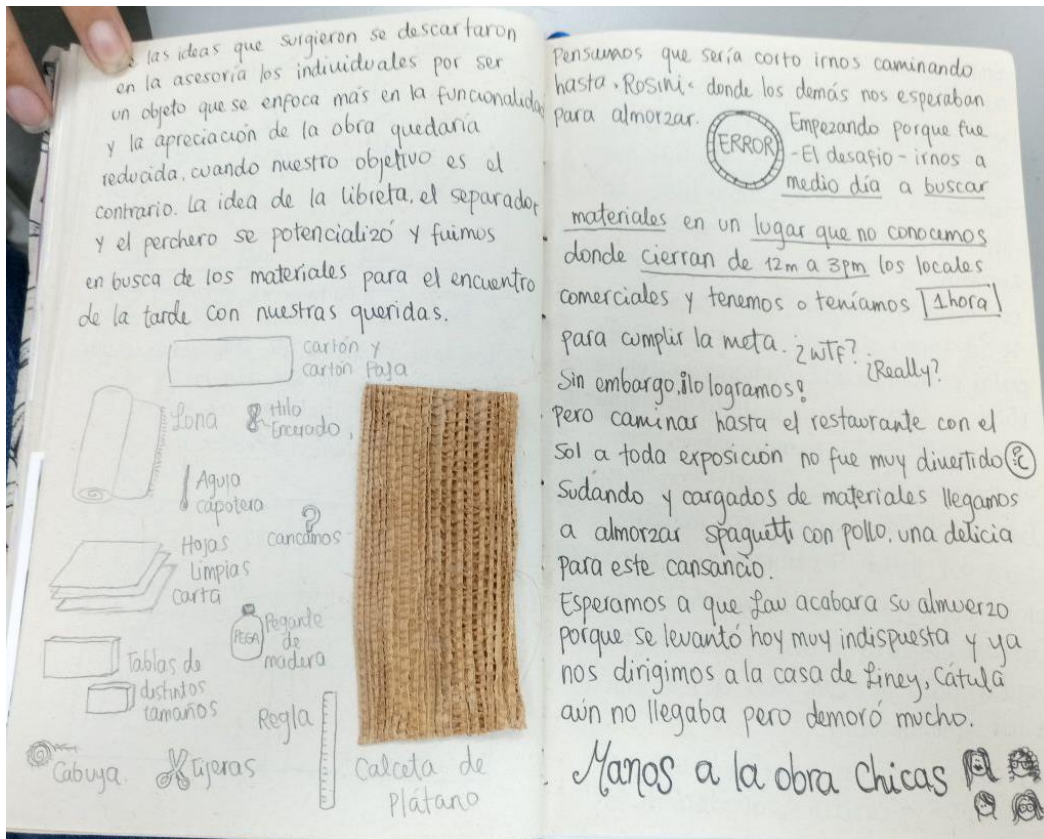 las ideas que surgieron se descartaron
en la asesoría los individuales por ser
un objeto que se enfoca más en la funcionalidad
y la apreciación de la obra quedaría
reducida, cuando nuestro objetivo es el
contrario. La idea de la libreta, el separador
y el perchero se potencializó y fuimos
en busca de los materiales para el encuentro
de la tarde con nuestras queridas.
cartón y
cartón Paja
Lona
Hilo
Encerado,
Aguja
capotera
cancamos
Hojas
Limpias
carta
PEGA
Pegante
de
madera
Tablas de
distintos
tamaños
Regla
Cabuya.
Tijeras
Calceta de
Plátano
Pensamos que sería corto irnos caminando
hasta "Rosini" donde los demás nos esperaban
para almorzar.
ERROR
Empezando porque fue
-El desafío- irnos a
medio día a buscar
materiales en un lugar que no conocemos
donde cierran de 12m a 3pm los locales
comerciales y tenemos o teníamos 1hora
para cumplir la meta. ¿WTF?
¿Really?
Sin embargo, ¡lo logramos!
Pero caminar hasta el restaurante con el
Sol a toda exposición no fue muy divertido
Sudando y cargados de materiales llegamos
a almorzar spaguetti con pollo, una delicia
para este cansancio.
Esperamos a que Lau acabara su almuerzo
porque se levantó hoy muy indispuesta y ya
nos dirigimos a la casa de Liney, Cátula
aún no llegaba pero demoró mucho.
Manos a la obra Chicas